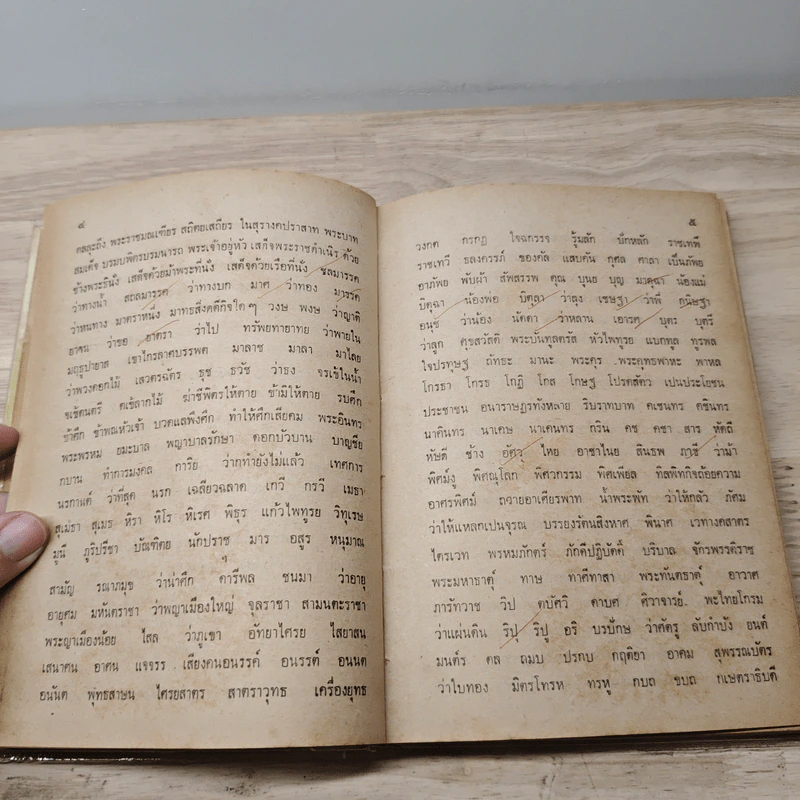 ๔
คลสุะถึง พระราชมณเฑียร สถิตยเสถียร ในสุรางคปราสาท พระบาท
สมเด็จ บรมบพิตรบรมนารถ พระเจ้าอยู่หัว เสด็จพระราชดำเนิร ด้วย
ช้างพระธินั่ง เสด็จด้วยม้าพระที่นั่ง เสด็จด้วยเรือที่นั่ง ชลมารรค
ว่าทางน้ำ สถลมารรค ว่าทางบก มาศ ว่าทอง มารรค
ว่าหนทาง มาตราหนึ่ง มาทธสิ่งคดีกิจใดๆ วงษ พงษ ว่าญาติ
ยาจน ว่าขอ ยาตรา ว่าไป ทรัพยทายาทย ว่าพายใน
มธุรปายาส เขาไกรลาศบรรพต มาลาช มาลา มาไลย
ว่าพวงดอกไม้ เสวตรฉัตร ธุช ธวัช ว่าธง จรเข้ในน้ำ
จเข้ดนตรี ตเข้ลากไม้ ฆ่าชีพิตรให้ตาย ข้ามิให้ตาย รบศึก
ข้าศึก ข้าพณหัวเจ้า บวดแลพึงศึก ทำให้ศึกเสียคม พระอินทร
พระพรหม ยมะบาล พญาบาลรักษา ดอกบัวบาน บาญชีย
กบาน ทำการมงคล การิย ว่ากทำยังไม่แล้ว เทศการ
นรกานต์ ว่าที่สุด นรก เฉลียวฉลาด เกวี กรวี เมธา
สุเมธา สุเมธ หิรา หิโร หิเรศ พิธูร แก้วไพทูรย วิทุเรษ
มูนี ภูริปรีชา บัณฑิตย นักปราช มาร อสูร หนุมาณ
สามัญ รณาภมุข ว่าน่าศึก ดารีพล ชนมา ว่าอายุ
อายุศม มหันตราชา ว่าพญาเมืองใหญ่ จุลราชา สามนตะราชา
พระญาเมืองน้อย ไสล ว่าภูเขา อัทยาไศรย ไสยาสน
เสนาศน อาศน แจจรร เสียงคนอนรรค์ อนรรต์ อนนต
อนันต พุทธสาษน ไศรยสาตร สาตราวุทธ เครื่องยุทธ
๕
วงกต กรกฏ ใจฉกรรจ รุ้มลัก บักหลัก ราชเทพี
ราชเทวี ธลงครรภ์ ของคัล แสบคัน กุศล ศาลา เป็นภัพย
อาภัพย พับผ้า สัพสรรพ คุณ บุนย บุญ มาตุฉา น้องแม่
บิตุฉา น้องพ่อ บิตุลา ว่าลุง เชษฐา ว่าพี่ กนิษฐา
อนุช ว่าน้อง นัดดา ว่าหลาน เอารศ บุตร บุตรี
ว่าลูก ศุขสวัสดิ พระบันทูลตรัส หัวไพทูรย แบกทูล ทูรพล
ใจประทุษฐ ถัทธะ มานะ พระครุ พระคุทธพาหะ พาหล
โกรธา โกรธ โกฏิ โกส โกษฐ โปรดสัตว เปนประโยชน
ประชาชน อนาราษฎรทั้งหลาย ริบราทบาท คเชนทร คชินทร
นาคินทร นาเคษ นาเคนทร กริน คช คชา สาร หัตถี
หัษดี ช้าง อัศว ไหย อาชาไนย สินธพ ภาชี ว่าม้า
พิศม์งู พิศณุโลก พิศวกรรม พิศเพียล ทิลพิทกิจถ้อยความ
อาศรพิศม์ ถวายอาเศียรพาท น้ำพระพัท ว่าให้กลัว ภัศม
ว่าให้แหลกเปนจุรณ บรรยงรัตนสิงหาศ พินาศ เวทางคสาตร
ไตรเวท พรหมภักตร์ ภักดีปฏิบัตติ์ บริบาล จักรพรรดิราช
พระมหาธาตุ์ ทาษ ทาศีทาสา พระทันตธาตุ์ อาวาศ
ภารัทวาช วิป ดบัศวี ดาบศ ศิวาจารย์ พะไทยไกรม
ว่าแผ่นดิน ริปุ ริปู อริ บรปักษ ว่าศัตรู ลับกำบัง ยนต์
มนต์ร ดล ถมบ ปรกบ กฤติยา อาคม สุพรรณบัตร
ว่าใบทอง มิตรโทรห ทรหู กบถ ขบถ กเษตราธิบดี